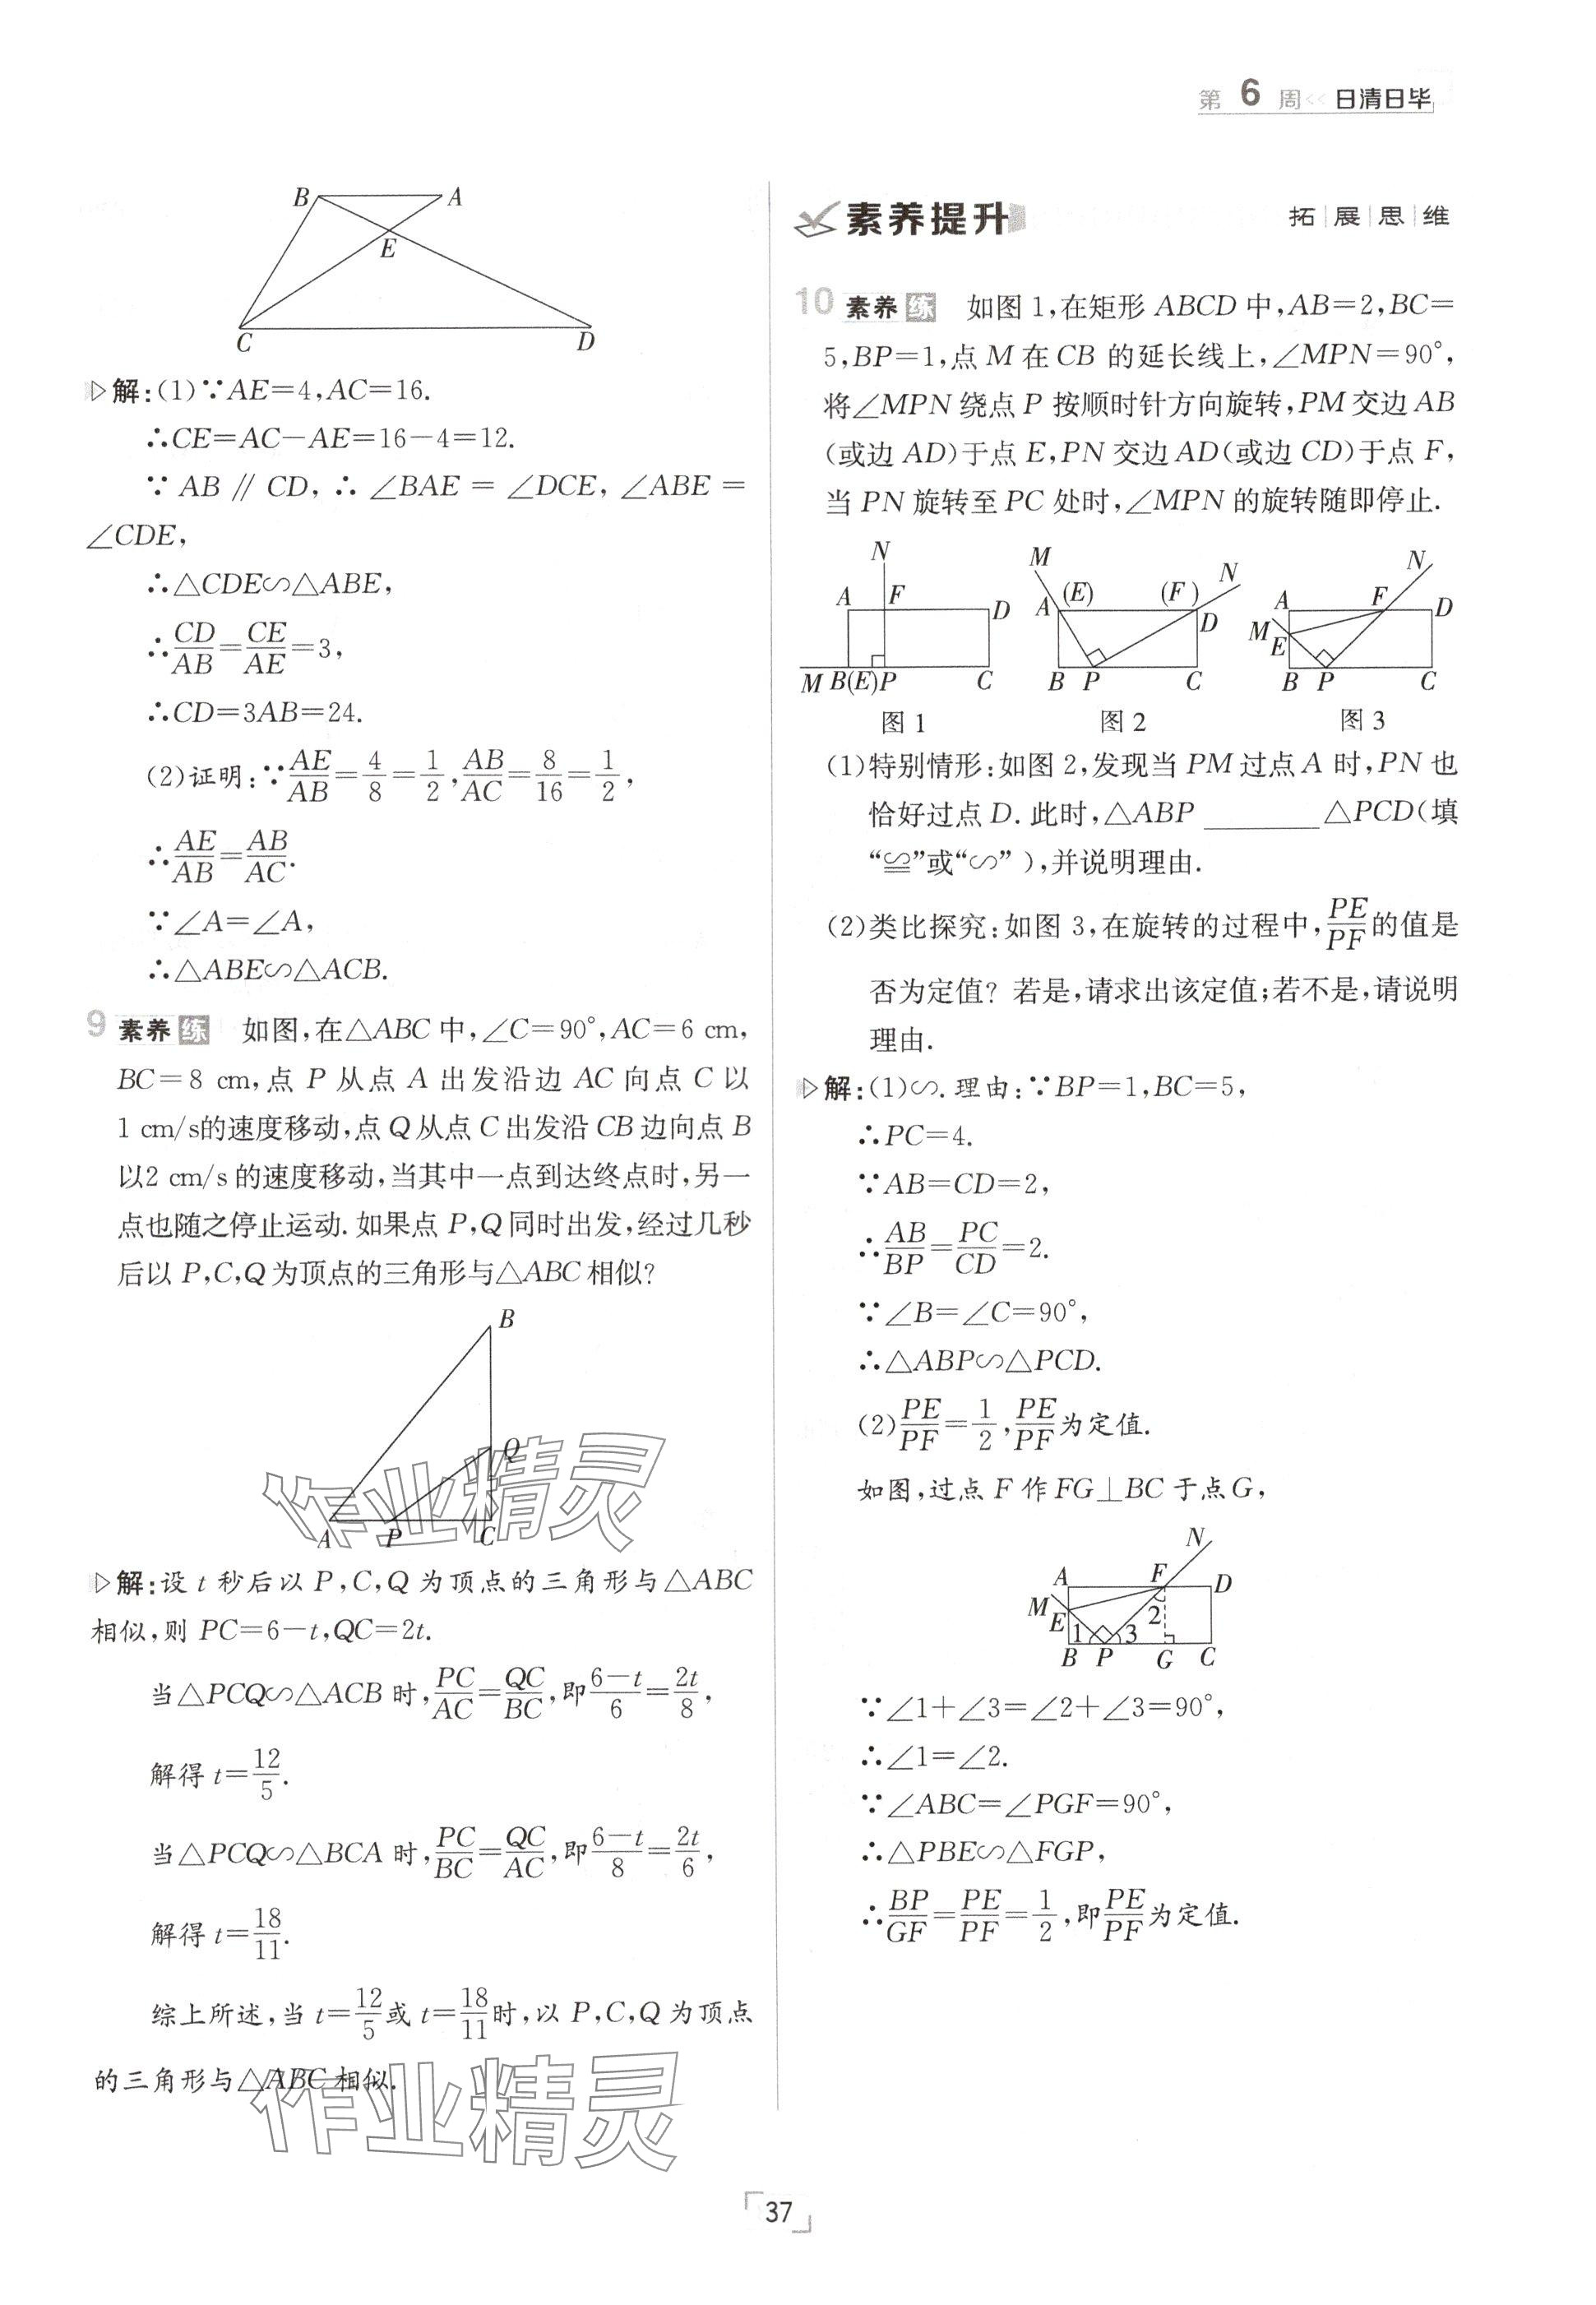 第 6 周<< 日清日毕
B A
E
C D
▷解:(1)∵AE=4,AC=16.
∴CE=AC-AE=16-4=12.
∵ AB // CD, ∴ ∠BAE = ∠DCE, ∠ABE =
∠CDE,
∴△CDE∽△ABE,
∴CD/AB=CE/AE=3,
∴CD=3AB=24.
(2)证明:∵AE/AB=4/8=1/2,AB/AC=8/16=1/2,
∴AE/AB=AB/AC.
∵∠A=∠A,
∴△ABE∽△ACB.
9 素养 练 如图,在△ABC 中,∠C=90°,AC=6 cm,
BC=8 cm,点 P 从点 A 出发沿边 AC 向点 C 以
1 cm/s的速度移动,点 Q 从点 C 出发沿 CB 边向点 B
以2 cm/s 的速度移动,当其中一点到达终点时,另一
点也随之停止运动.如果点 P,Q 同时出发,经过几秒
后以 P,C,Q 为顶点的三角形与△ABC 相似?
B
Q
A P C
作业精灵
▷解:设 t 秒后以 P,C,Q 为顶点的三角形与△ABC
相似,则 PC=6-t,QC=2t.
当△PCQ∽△ACB 时,PC/AC=QC/BC,即(6-t)/6=2t/8,
解得 t=12/5.
当△PCQ∽△BCA 时,PC/BC=QC/AC,即(6-t)/8=2t/6,
解得 t=18/11.
综上所述,当 t=12/5或 t=18/11时,以 P,C,Q 为顶点
的三角形与△ABC 相似.
作业精灵
素养提升 拓|展|思|维
10 素养 练 如图 1,在矩形 ABCD 中,AB=2,BC=
5,BP=1,点 M 在 CB 的延长线上,∠MPN=90°,
将∠MPN 绕点 P 按顺时针方向旋转,PM 交边 AB
(或边 AD)于点 E,PN 交边 AD(或边 CD)于点 F,
当 PN 旋转至 PC 处时,∠MPN 的旋转随即停止.
N
A F D
M B(E)P C
图 1
M N
A (E) (F) D
B P C
图 2
N
A F D
M E
B P C
图 3
(1)特别情形:如图 2,发现当 PM 过点 A 时,PN 也
恰好过点 D.此时,△ABP ________ △PCD(填
“≌”或“∽”),并说明理由.
(2)类比探究:如图 3,在旋转的过程中,PE/PF的值是
否为定值? 若是,请求出该定值;若不是,请说明
理由.
▷解:(1)∽.理由:∵BP=1,BC=5,
∴PC=4.
∵AB=CD=2,
∴AB/BP=PC/CD=2.
∵∠B=∠C=90°,
∴△ABP∽△PCD.
(2)PE/PF=1/2,PE/PF为定值.
如图,过点 F 作 FG⊥BC 于点G,
N
A F D
M E 1 2 3
B P G C
∵∠1+∠3=∠2+∠3=90°,
∴∠1=∠2.
∵∠ABC=∠PGF=90°,
∴△PBE∽△FGP,
∴BP/GF=PE/PF=1/2,即PE/PF为定值.
37